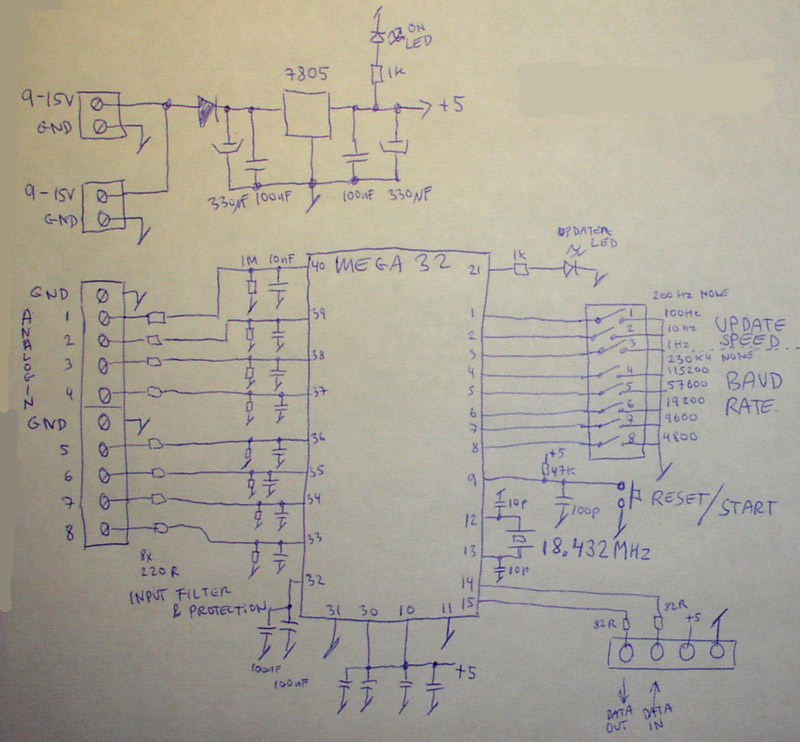 ON
LED
1K
7805
9-15V
GND
+5
9-15V
GND
330µF 100nF 100nF 330µF
UPDATE
LED
1M 10nF
40 MEGA 32 21
1K
GND
ANALOG IN
1
2
3
4
GND
5
6
7
8
39
38
37
36
35
34
33
32
8x
220R
INPUT FILTER
& PROTECTION
100nF
100nF
31 30 10 11
+5
1
2
3
4
5
6
7
8
9
12
13
14
15
200Hz NONE
1 100Hz
2 10Hz
3 1Hz
UPDATE
SPEED
230K4 NONE
4 115200
5 57600
6 19200
7 9600
8 4800
BAUD
RATE.
+5
47K
100p
RESET/START
10p
18.432MHz
10p
82R
82R
+5
DATA
OUT
DATA
IN